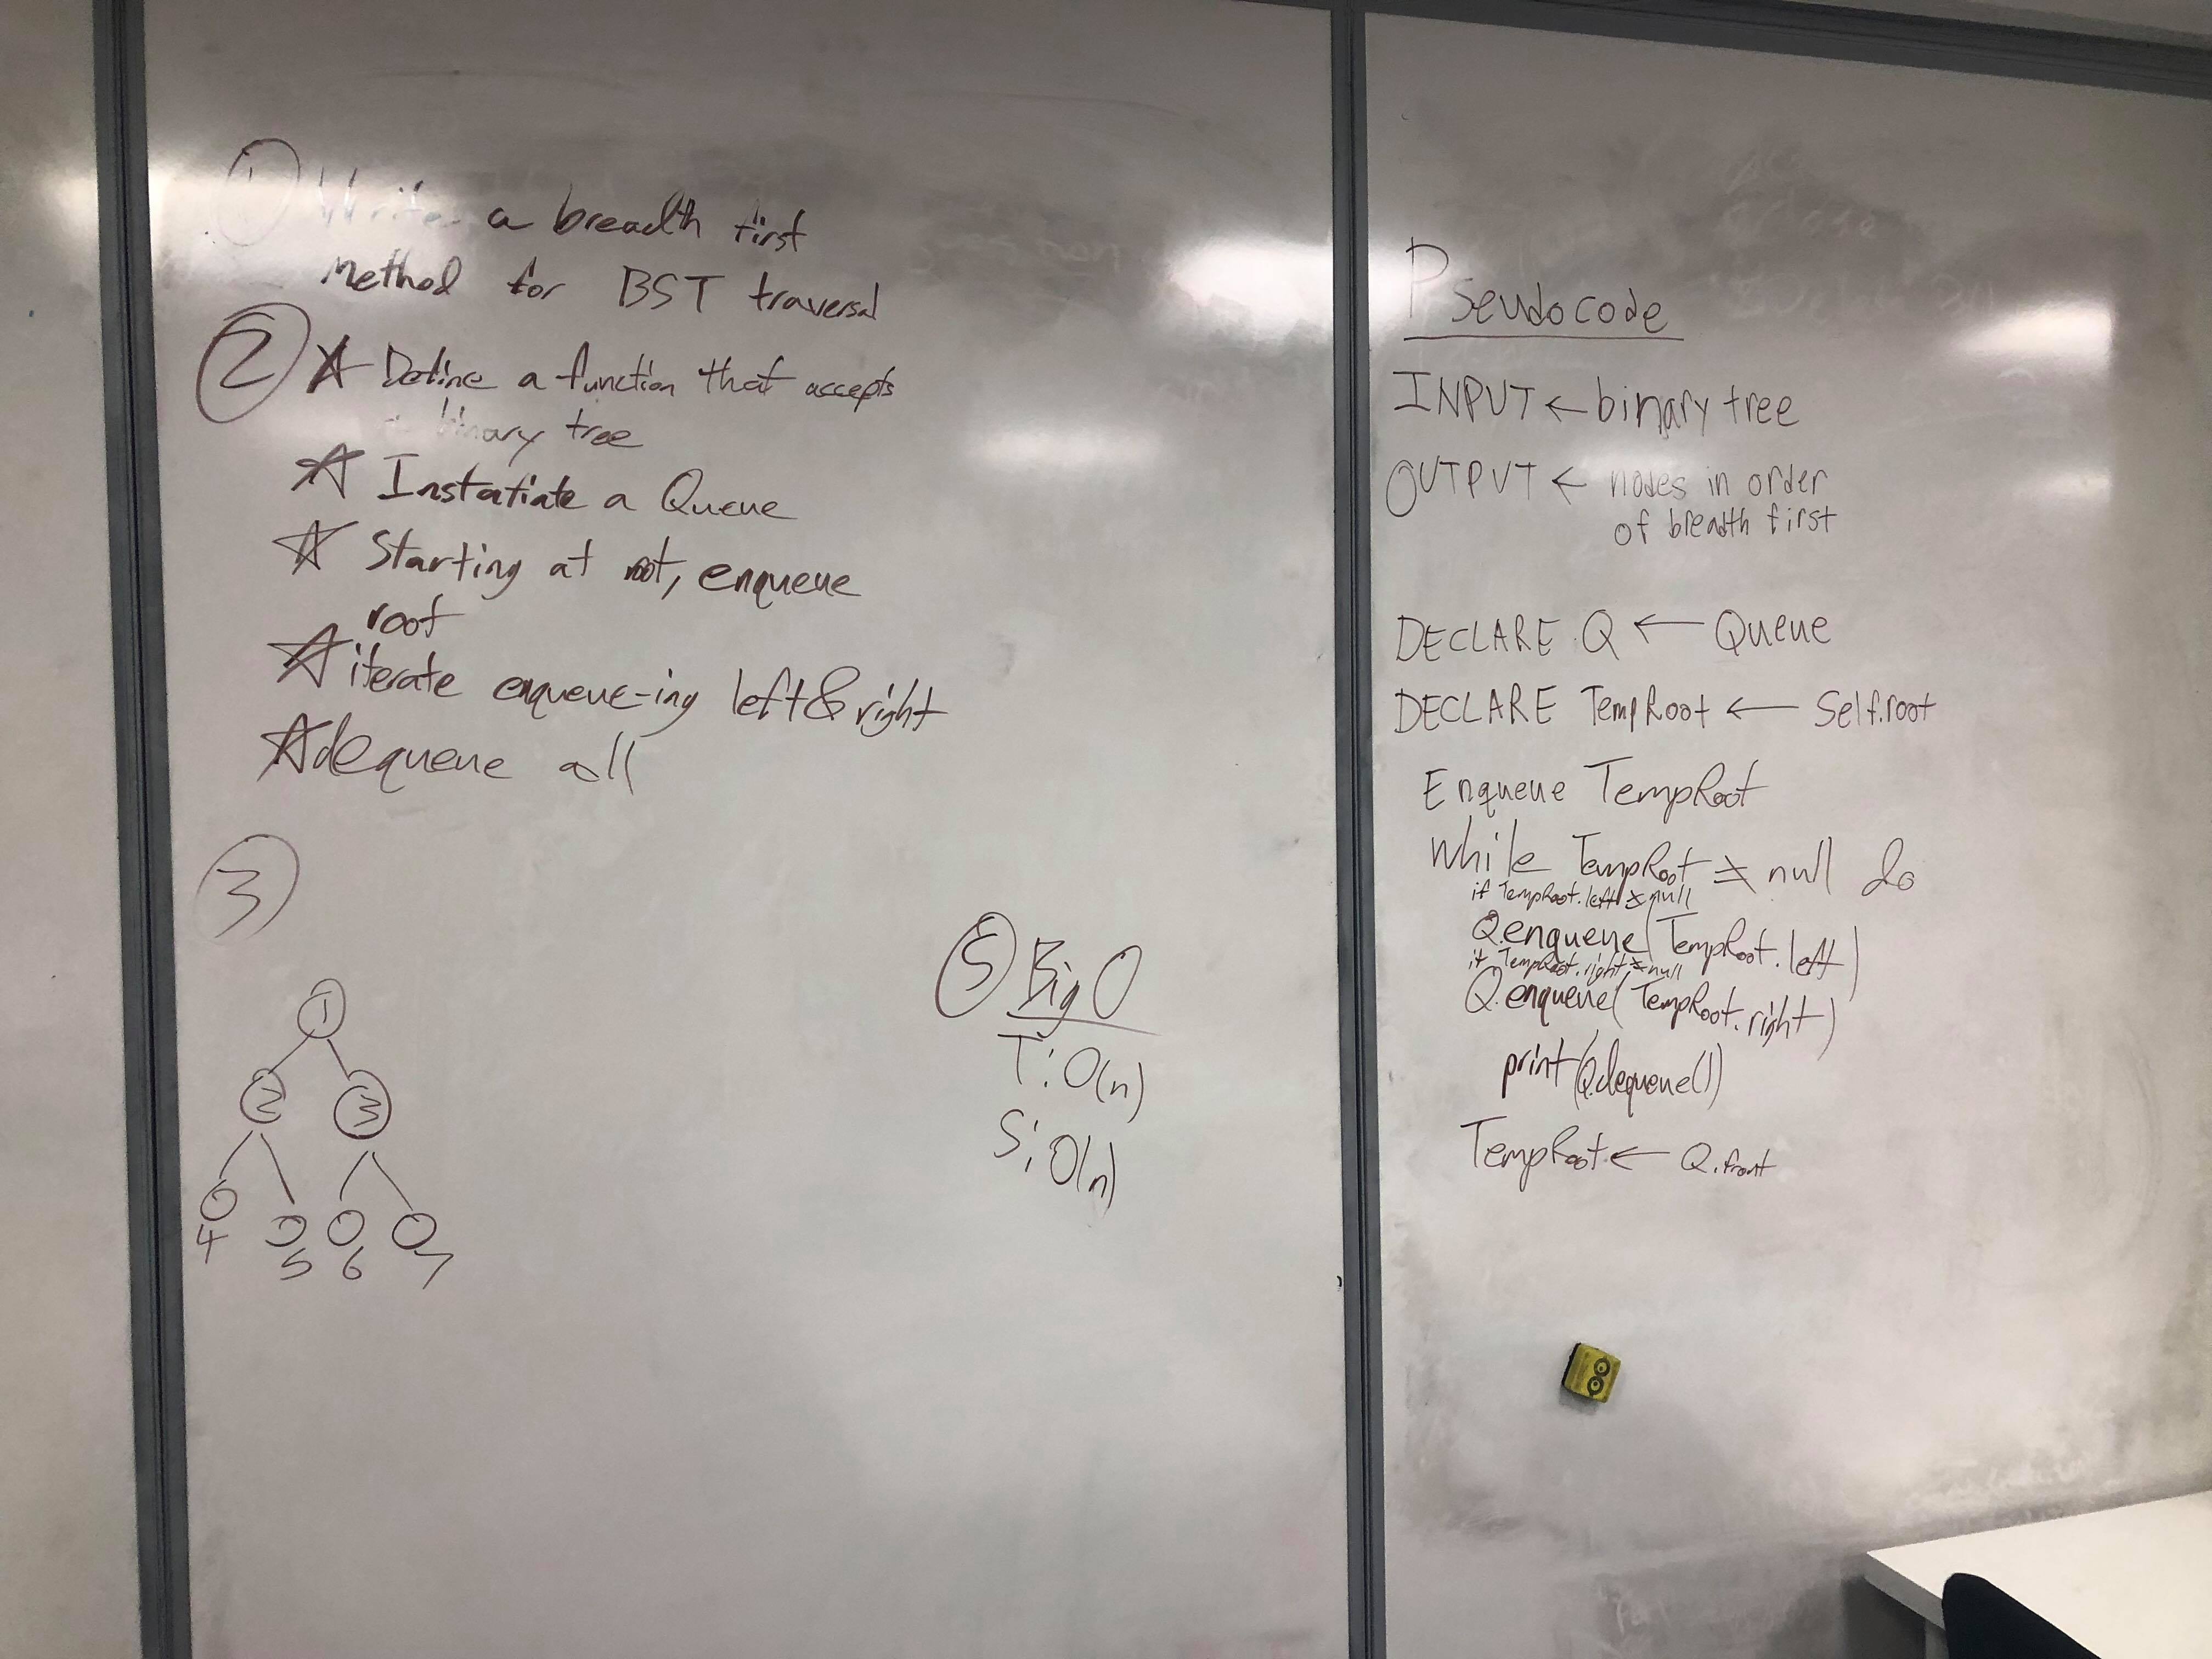 ① Write a breadth first
method for BST traversal
② ☆ Define a function that accepts
a binary tree
☆ Instatiate a Queue
☆ Starting at root, enqueue
root
☆ iterate enqueue-ing left & right
☆ dequeue all
③
1
2 3
4 5 6 7
⑤ Big O
T: O(n)
S: O(n)
Pseudocode
INPUT ← binary tree
OUTPUT ← nodes in order
of breadth first
DECLARE Q ← Queue
DECLARE TempRoot ← Self.root
Enqueue TempRoot
while TempRoot ≠ null do
if TempRoot.left ≠ null
Q.enqueue(TempRoot.left)
if TempRoot.right ≠ null
Q.enqueue(TempRoot.right)
print(Q.dequeue())
TempRoot ← Q.front